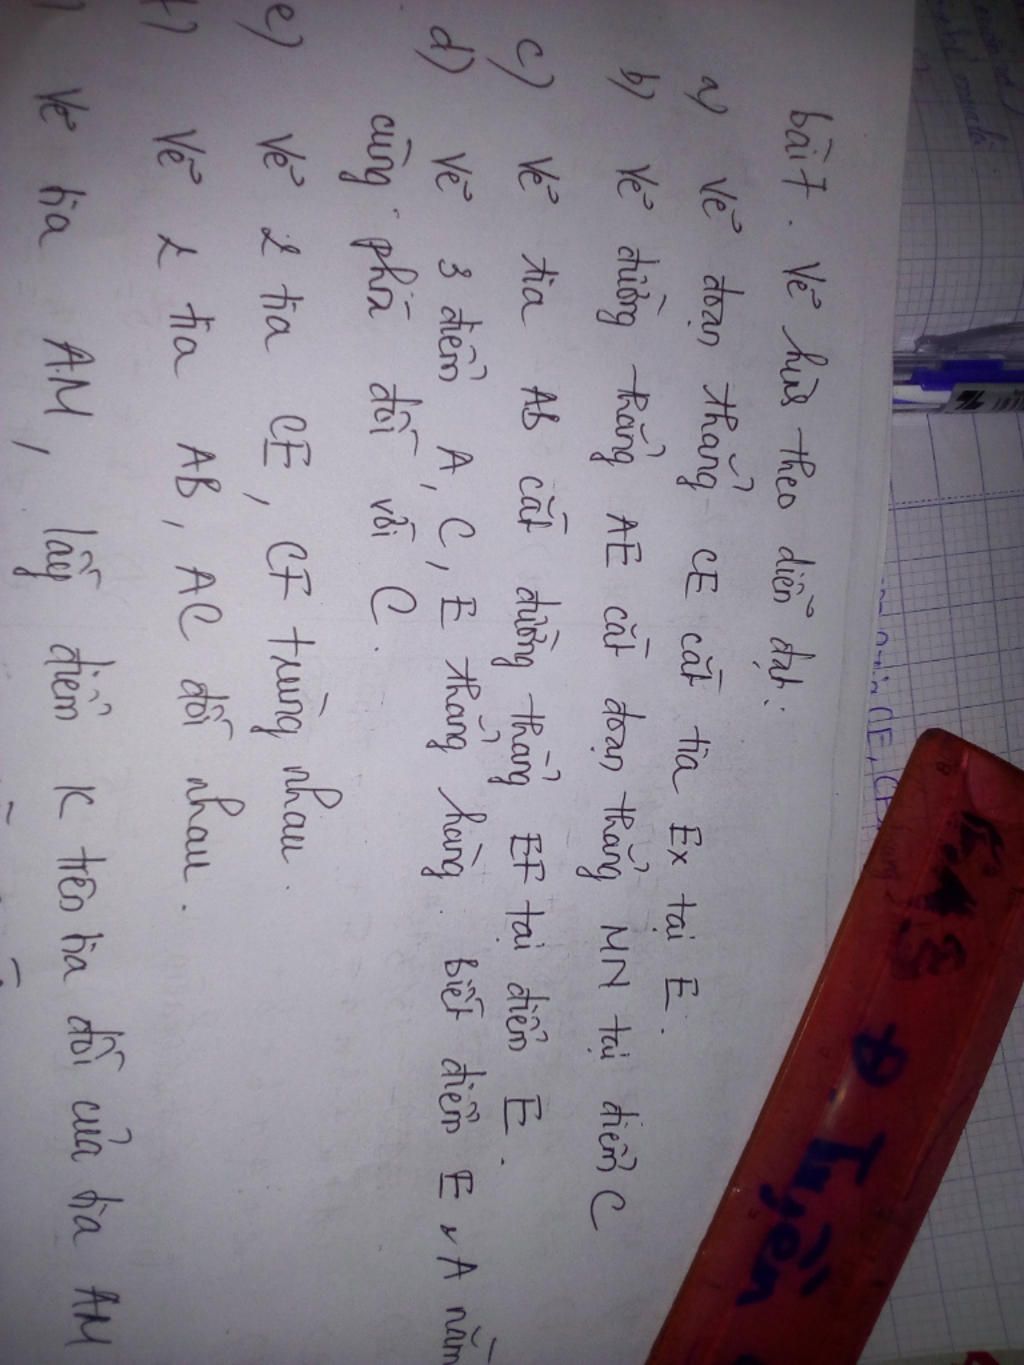 bài 7. Vẽ hình theo diễn đạt:
a) Vẽ đoạn thẳng CE cắt tia Ex tại E.
b) Vẽ đường thẳng AE cắt đoạn thẳng MN tại điểm C
c) Vẽ tia AB cắt đường thẳng EF tại điểm E.
d) Vẽ 3 điểm A, C, E thẳng hàng. biết điểm E và A nằm
cùng phía đối với C.
e) Vẽ 2 tia CE, CF trùng nhau.
f) Vẽ 2 tia AB, AC đối nhau.
Vẽ tia AM, lấy điểm K trên tia đối của tia AM
Đ. Tuyên